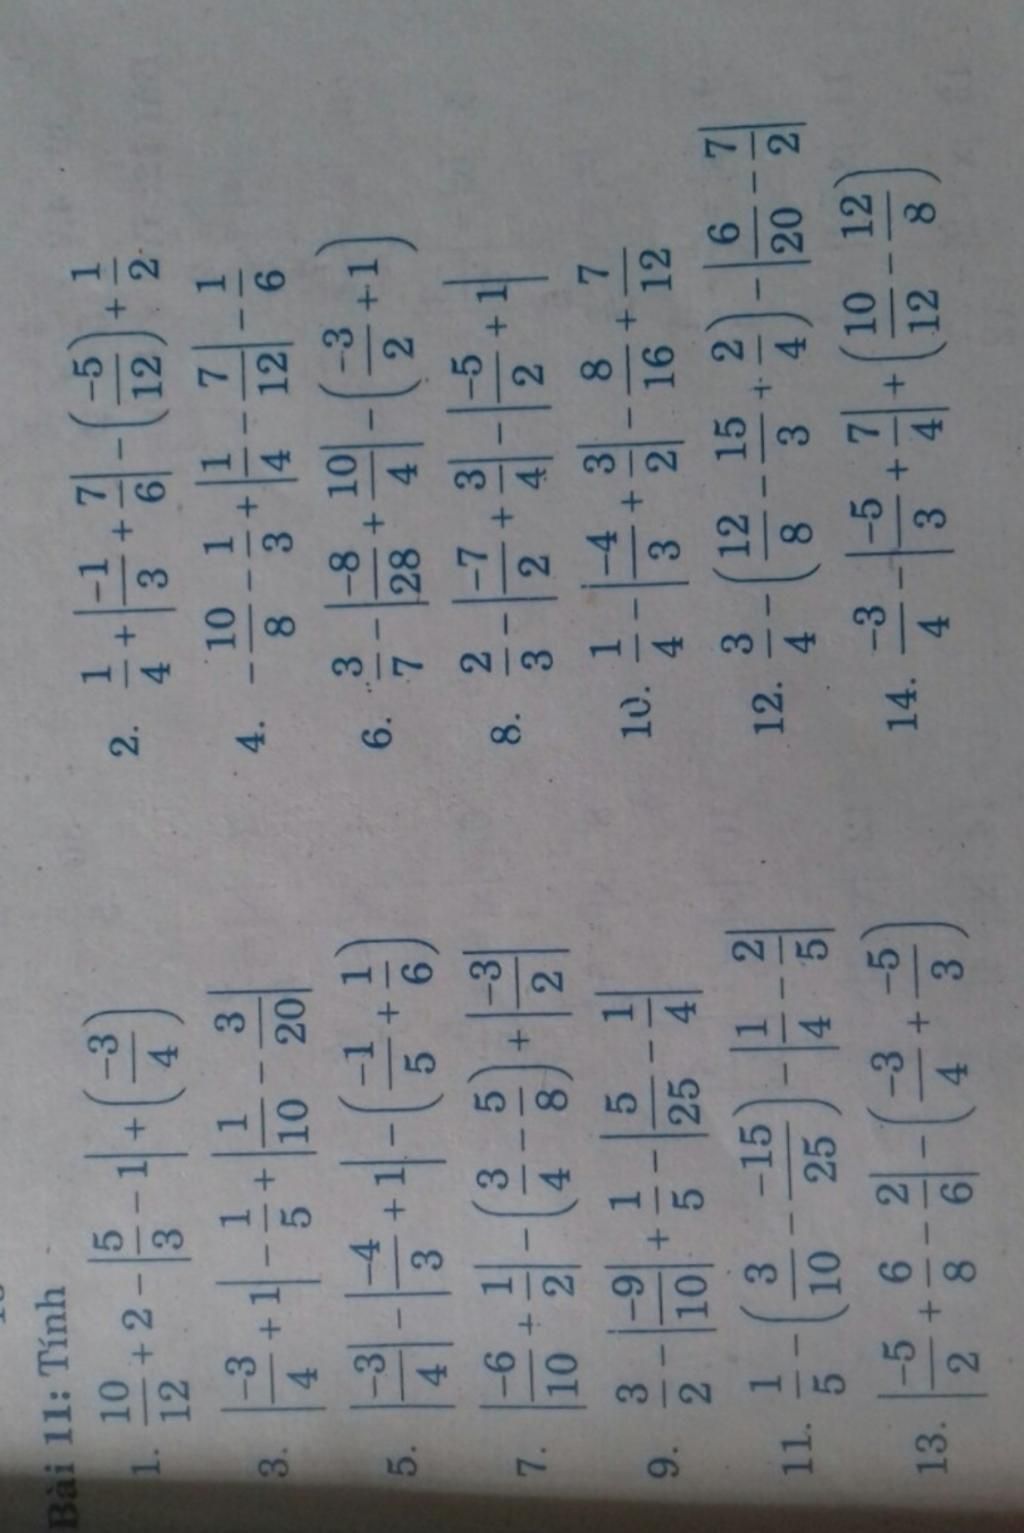 Bài 11: Tính
1. 10/12 + 2 - |5/3 - 1| + (-3/4)
2. 1/4 + |-1/3 + 7/6| - (-5/12) + 1/2
3. |-3/4 + 1| - 1/5 + |1/10 - 3/20|
4. -10/8 - 1/3 + |1/4 - 7/12| - 1/6
5. |-3/4| - |-4/3 + 1| - (-1/5 + 1/6)
6. 3/7 - |-8/28 + 10/4| - (-3/2 + 1)
7. |-6/10 + 1/2| - (3/4 - 5/8) + |-3/2|
8. 2/3 - |-7/2 + 3/4| - |-5/2 + 1|
9. 3/2 - |-9/10| + 1/5 - |5/25 - 1/4|
10. 1/4 - |-4/3 + 3/2| - 8/16 + 7/12
11. 1/5 - (3/10 - -15/25) - |1/4 - 2/5|
12. 3/4 - (12/8 - 15/3 + 2/4) - |6/20 - 7/2|
13. |-5/2 + 6/8 - 2/6| - (-3/4 + -5/3)
14. -3/4 - |-5/3 + 7/4| + (10/12 - 12/8)